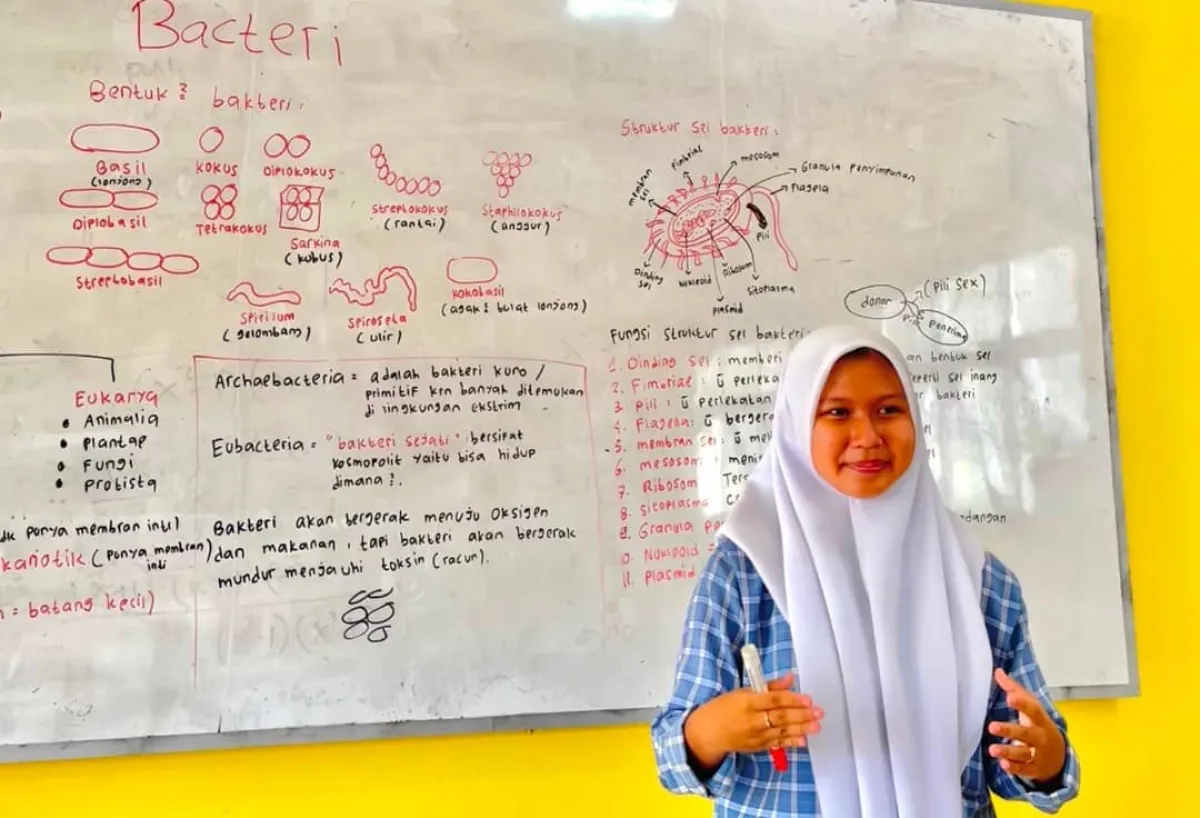 Bacteri
Bentuk 2 bakteri :
Basil
(lonjong)
kokus
Diplokokus
Streptokokus
(rantai)
Staphilokokus
(anggur)
Diplobasil
Tetrakokus
Sarkina
(kubus)
Streptobasil
Spirilum
(gelombang)
Spiroseta
(ulir)
kokobasil
(agak 2 bulat lonjong)
Eukarya
• Animalia
• plantae
• Fungi
• Protista
punya membran inti)
(punya membran inti)
= batang kecil)
Archaebacteria = adalah bakteri kuno /
primitif krn banyak ditemukan
di lingkungan ekstrim
Eubacteria = "bakteri sejati" bersifat
kosmopolit yaitu bisa hidup
dimana 2.
Bakteri akan bergerak menuju oksigen
dan makanan, tapi bakteri akan bergerak
mundur menjauhi toksin (racun).
Struktur sel bakteri :
membran sel
Fimbriae
mesosom
Granula penyimpanan
Flagela
pili
Dinding sel
Nukleoid
Ribosom
Sitoplasma
plasmid
donor
(pili sex)
pili
penerima
Fungsi struktur sel bakteri :
1. Dinding sel : memberi an bentuk sel
2. Fimbriae : sel inang
3. pili : perlekatan bakteri
4. Flagela :
5. membran sel :
6. mesosom
7. Ribosom
8. Sitoplasma
9. Granula
10. Nukleoid =
11. plasmid